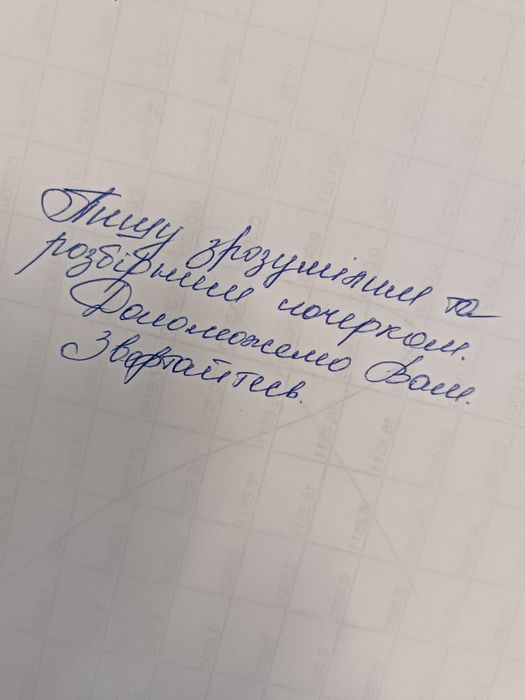 Пишу зрозумілим та
розбірливим почерком.
Допоможемо Вам.
Звертайтесь.